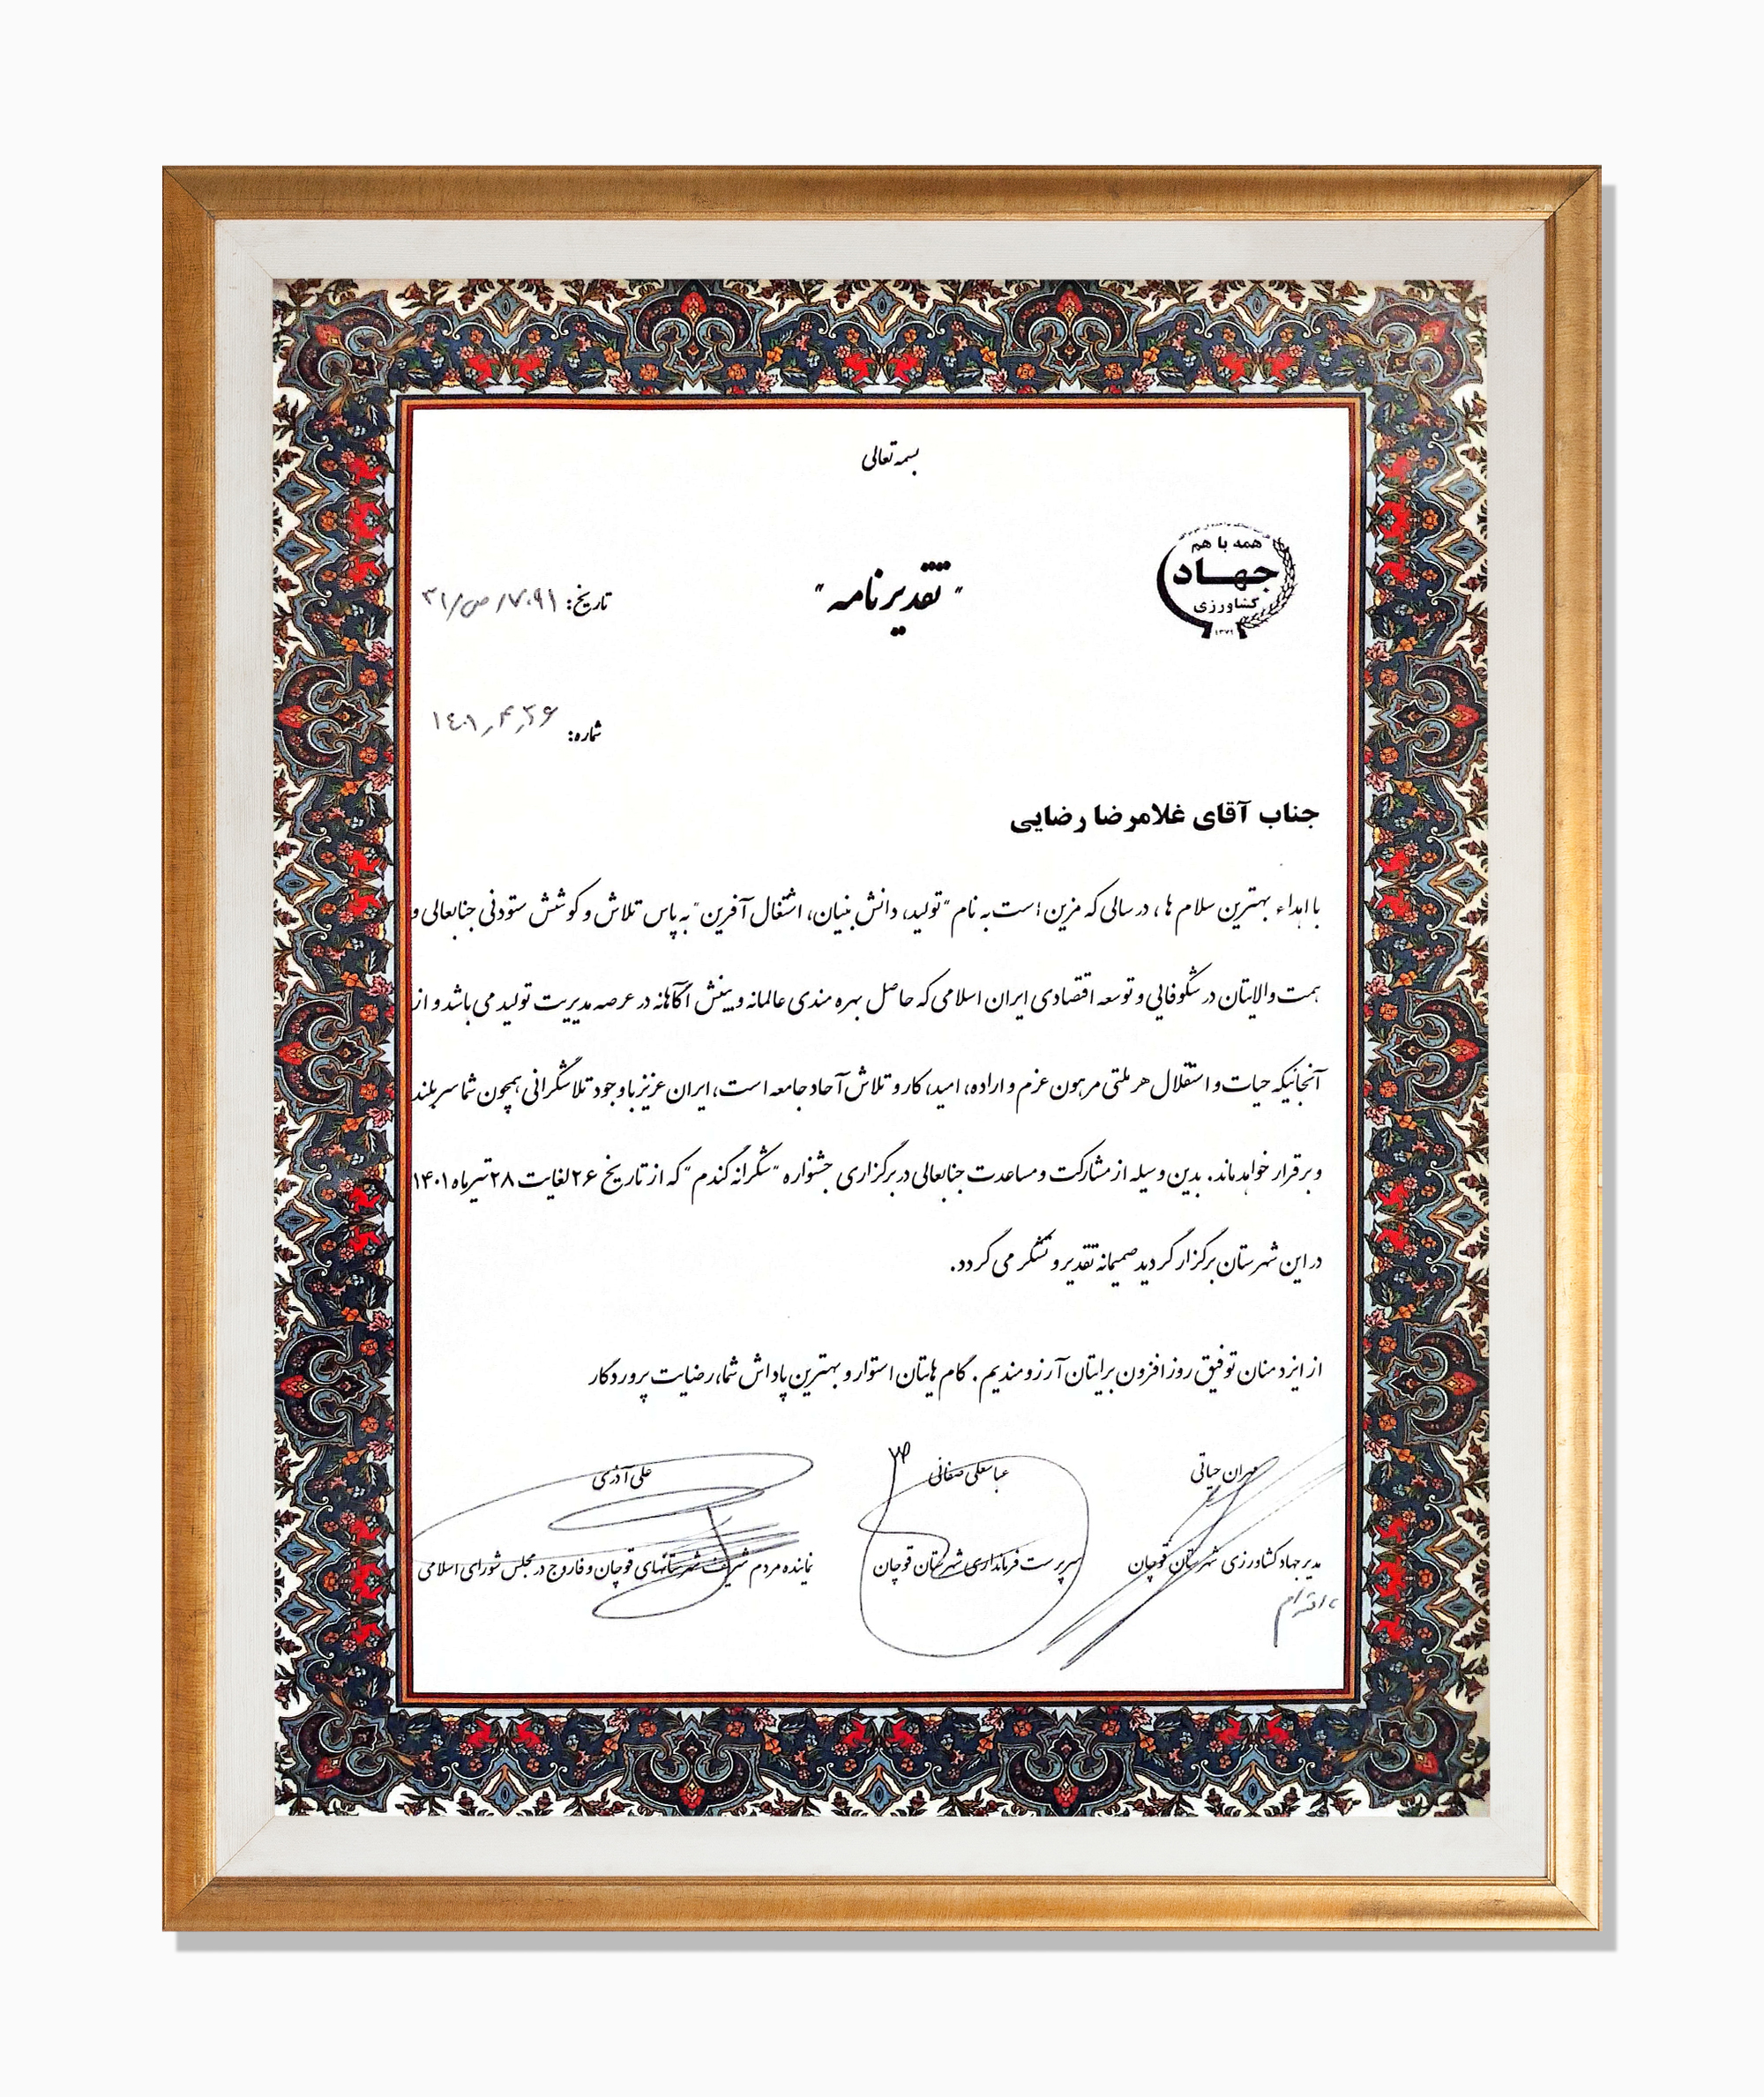 بسمه تعالی
همه با هم
جهاد
کشاورزی
۱۳۷۹
"تقدیرنامه"
تاریخ: ۳۱/ص/۱۷۰۹۱
شماره: ۱۴۰۱٫۴٫۲۶
جناب آقای غلامرضا رضایی
با اهداء بهترین سلام ها، در سالی که مزین است به نام "تولید، دانش بنیان، اشتغال آفرین" به پاس تلاش و کوشش ستودنی جنابعالی و
همت والایتان در شکوفایی و توسعه اقتصادی ایران اسلامی که حاصل بهره مندی عالمانه و بینش آگاهانه در عرصه مدیریت تولید می باشد و از
آنجائیکه حیات و استقلال هر ملتی مرهون عزم و اراده، امید، کار و تلاش آحاد جامعه است، ایران عزیز با وجود تلاشگرانی همچون شما سربلند
و برقرار خواهد ماند. بدین وسیله از مشارکت و مساعدت جنابعالی در برگزاری جشنواره "شکرانه گندم" که از تاریخ ۲۶ لغایت ۲۸ تیرماه ۱۴۰۱
در این شهرستان برگزار گردید صمیمانه تقدیر و تشکر می گردد.
از ایزد منان توفیق روز افزون برایتان آرزومندیم. گام هایتان استوار و بهترین پاداش شما، رضایت پروردگار
مهران حیاتی
مدیر جهاد کشاورزی شهرستان قوچان
عباسعلی صفائی
سرپرست فرمانداری شهرستان قوچان
علی آذری
نماینده مردم شریف شهرستانهای قوچان و فاروج در مجلس شورای اسلامی
با احترام